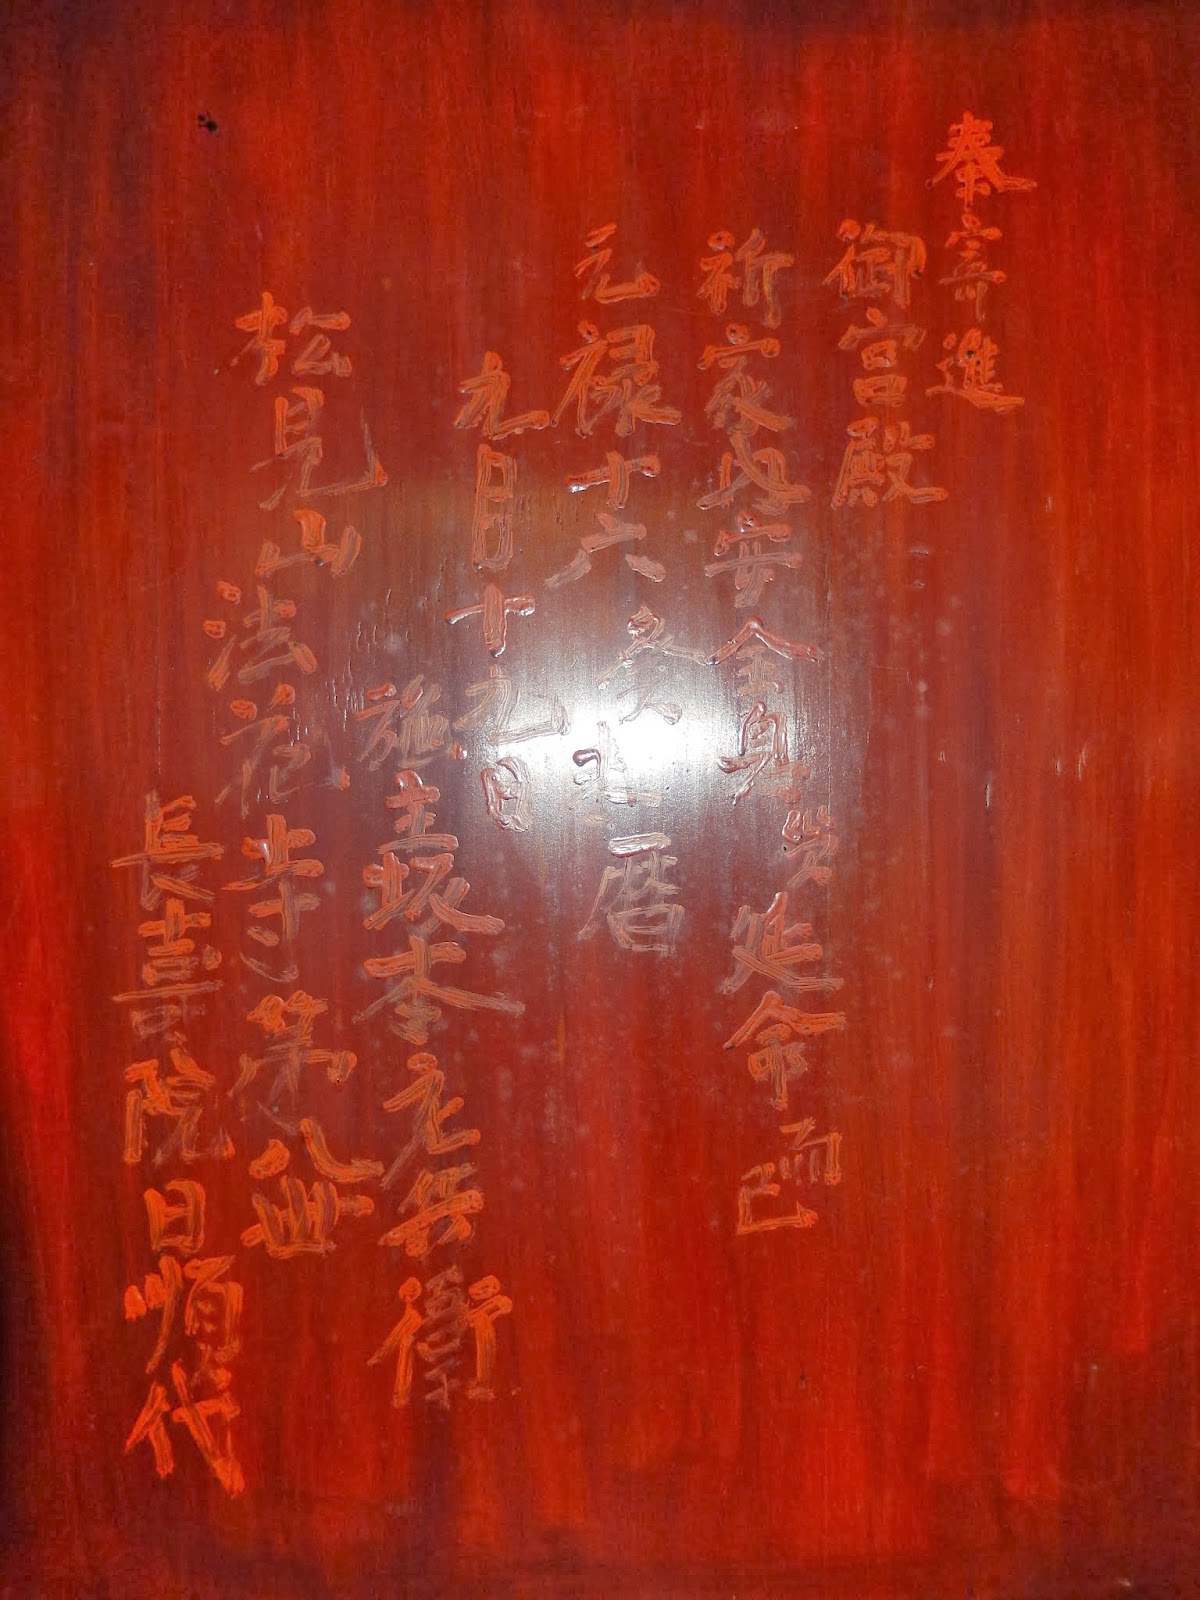 奉寄進
御宮殿
祈家内安全息災延命而已
元禄十六癸未暦
九月十九日
施主坂本兵衛
松見山法花寺第八世
長壽院日順代